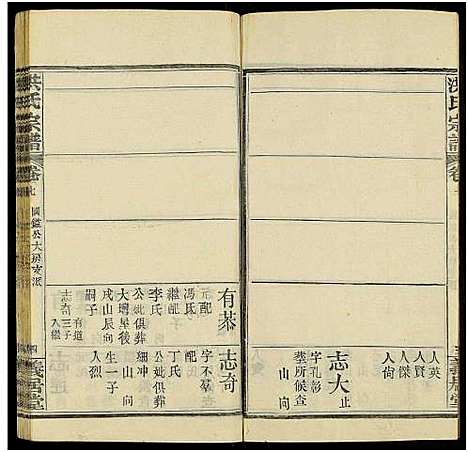 洪氏宗譜
人英
人賢
人傑
人尚
志大 止
字孔彰
塟所候查
山向
志奇
字不羣
配
丁氏
公妣俱葬
珊冲
山向
生一子
人烈
有恭
元配
馮氏
繼配
李氏
公妣俱葬
大壪屋後
戌山辰向
嗣子
志奇三子
有道
入繼
洪氏宗譜
卷七
國鑑公大房支派
四
義居堂